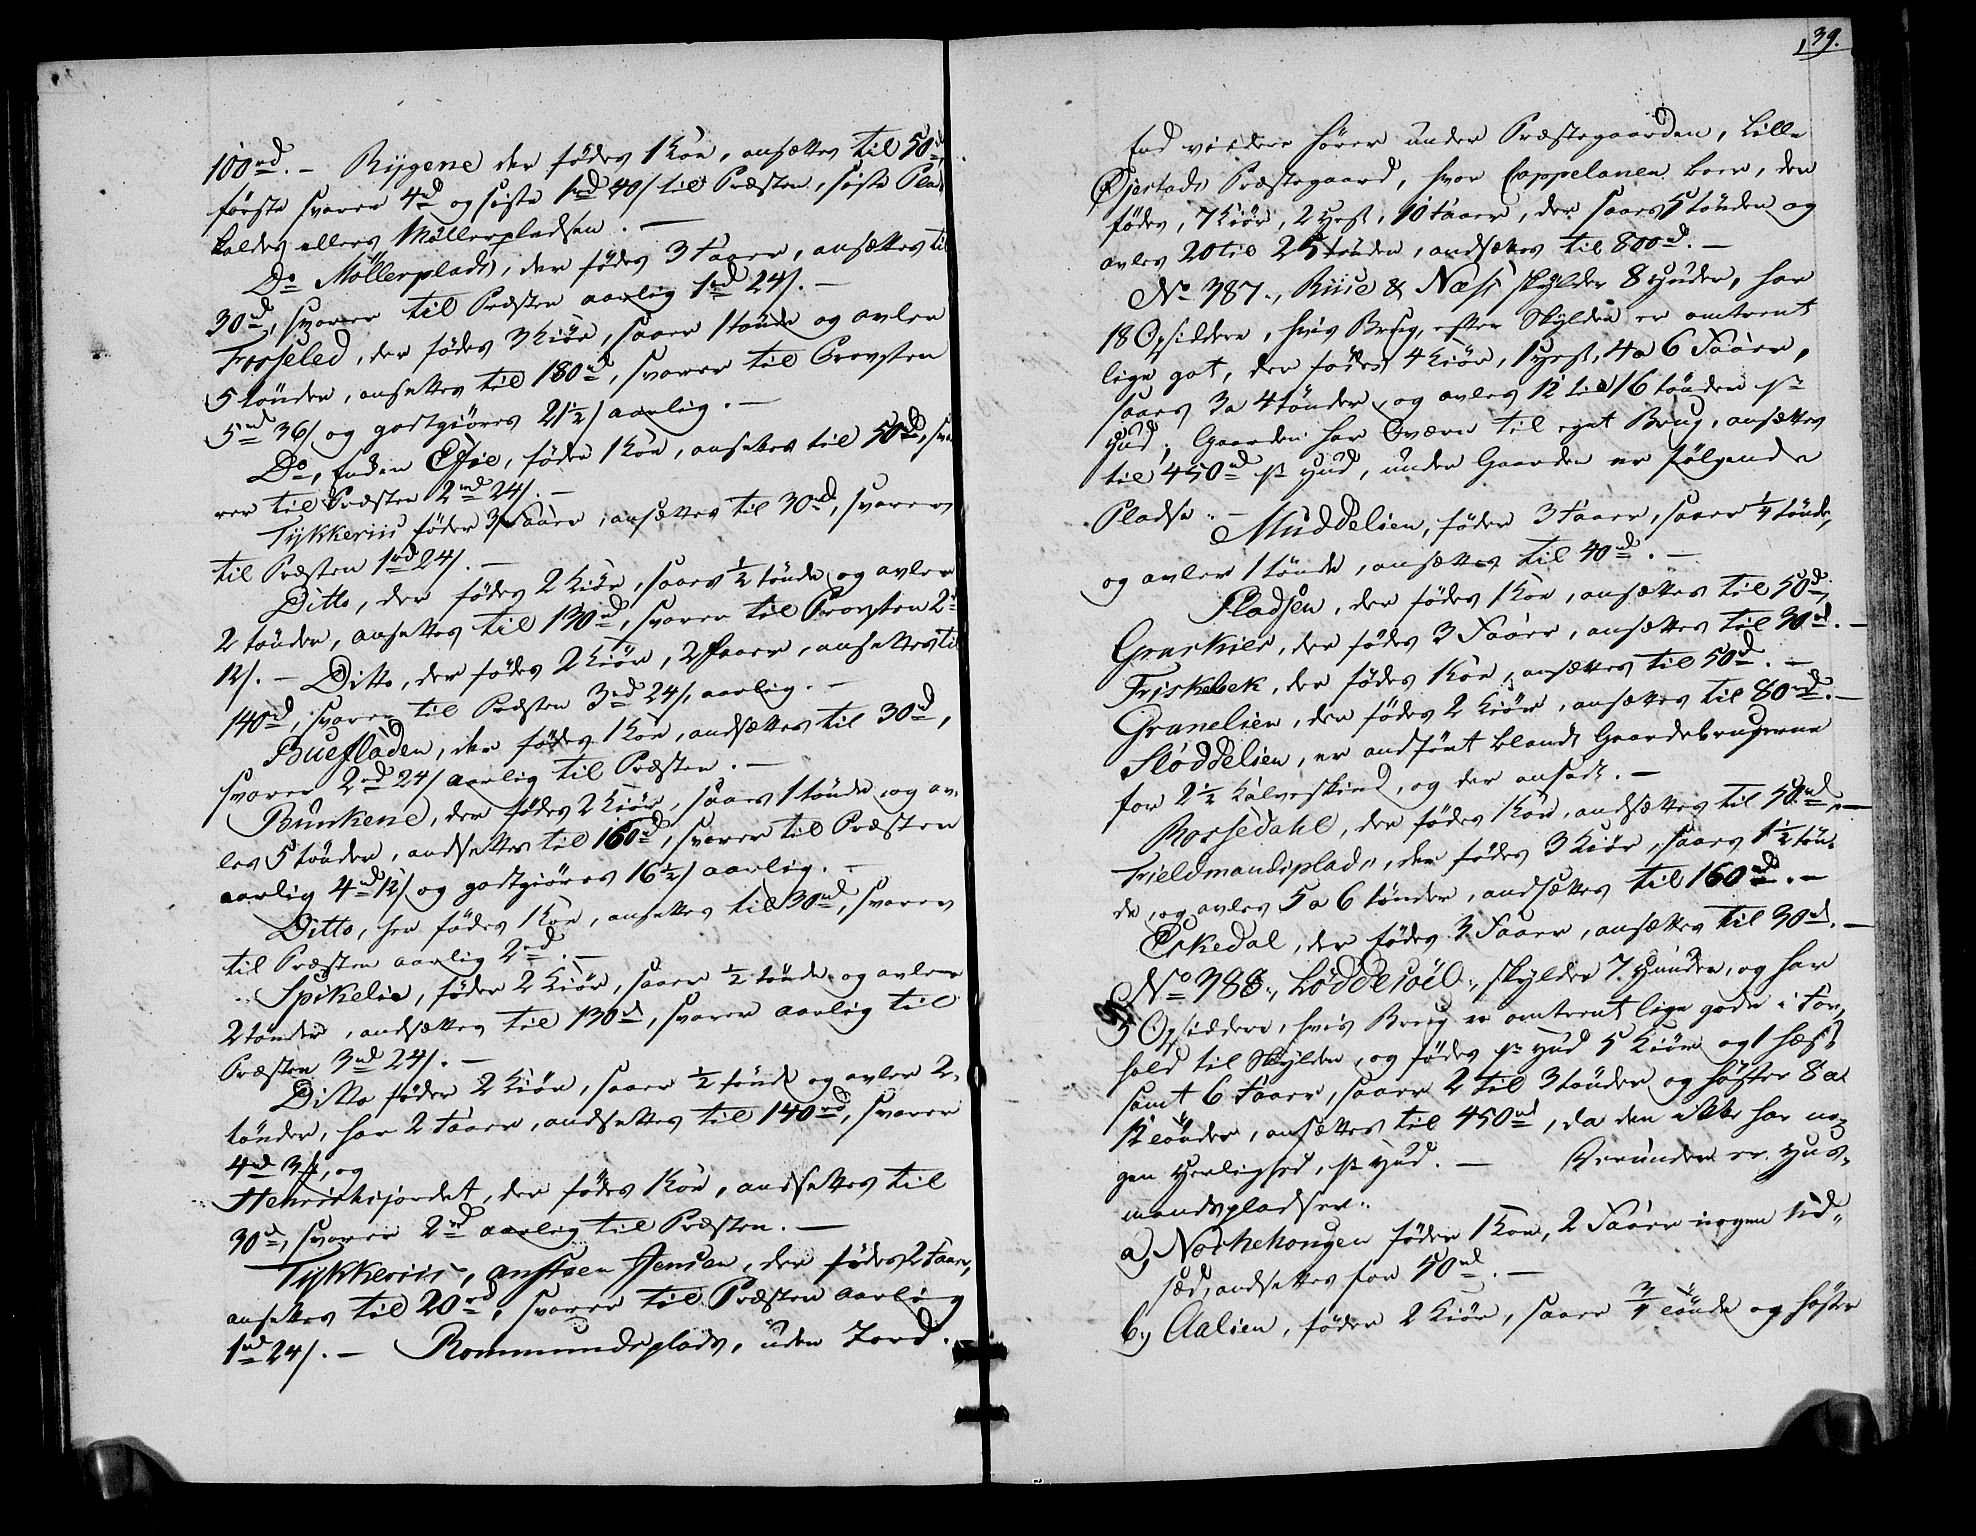 100rd. – Rygene der fødes 1 Koe, ansættes til 50rd,
første svarer 4rd og siste 1rd 40s til Præsten, siste Plads
kaldes ellers Møllerpladsen. –
Do Møllerplads, der fødes 3 Faaer, ansættes til
30rd, svarer til Præsten aarlig 1rd 24s. –
Fosseled, der fødes 3 Kiör, saaer 1 tönde og avler
5 tönder, ansættes til 180rd, svarer til Provsten
5rd 36s og godtgiöres 21½s aarlig. –
Do, Enden Efie, föder 1 Koe, ansættes til 50rd, sva-
rer til Præsten 2rd 24s. –
Tykkeriis föder 3 Faaer, ansættes til 30rd, svarer
til Præsten 1rd 24s. –
Ditto, der födes 2 Kiör, saaes ½ tönde og avler
2 tönder, ansættes til 130rd, svarer til Provsten 2rd
12s. – Ditto, der födes 2 Kiör, 2 Faaer, ansættes til
140rd, svarer til Præsten 3rd 24s aarlig. –
Buefladen, der födes 1 Koe, andsættes til 30rd,
svarer 2rd 24s aarlig til Præsten. –
Bunkene, der födes 2 Kiör, saaes 1 tönde og av-
les 5 tönder, andsættes til 160rd, svarer til Præsten
aarlig 4rd 12s og godtgiöres 16½s aarlig. –
Ditto, her födes 1 Koe, ansættes til 30rd, svarer
til Præsten aarlig 2rd. –
Spikelie, föder 2 Kiör, saaer ½ tönde og avler
2 tönder, andsættes til 130rd, svarer aarlig til
Præsten 3rd 24s. –
Ditto föder 2 Kiör, saaer ½ tönde og avler 2
tönder, har 2 Faaer, andsættes til 140rd, svarer
4rd 3s, og
Henrichsjordet, der födes 1 Koe, andsættes til
30rd, svarer 2rd aarlig til Præsten. –
Tykkeriis, Jensen, der födes 2 Faaer,
ansættes til 20rd, svarer til Præsten aarlig
1rd 24s. – Rommundsplads, uden Jord.
139.
End videre hører under Præstegaarden, Lille
Øjestads Præstegaard, hvor Cappelanen boer, der
födes, 7 Kiör, 2 Hest, 10 Faaer, der saaes 5 tönder og
avles 20 til 25 tönder, andsættes til 800rd. –
No 387., Riise & Næss skylder 8 Huder, har
18 Opsiddere, hvis Brug, efter Skylden er omtrent
lige got, der födes 4 Kiör, 1 Hest, 4 a 6 Faaer,
saaes 3 a 4 tönder og avles 12 til 16 tönder pr
Hud; Gaarden har Qværn til eget Brug, ansættes
til 450rd pr Hud, under Gaarden er følgende
Pladse. –
Muddelien, föder 3 Faaer, saaer ¼ tönde,
og avler 1 tönde, ansættes til 40rd. –
Pladsen, der födes 1 Koe, ansættes til 50rd,
Graskier, der födes 3 Faaer, ansættes til 30rd. –
Friskebek, der födes 1 Koe, ansættes til 50rd. –
Granelien, der födes 2 Kiör, ansættes til 80rd. –
Støddelien, er andført blandt Gaardebrugerne
for 2½ Kalveskind, og der ansadt. –
Rossedahl, der födes 1 Koe, andsættes til 50rd. –
Fieldmandsplads, der födes 3 Kiör, saaes 1½ tön-
de, og avles 5 a 6 tönder, andsættes til 160rd. –
Eskedal, der födes 3 Faaer, ansættes til 30rd. –
No 388., Løddesöel., skylder 7 Huuder, og har
Opsiddere, hvis Brug er omtrent lige gode i For-
hold til Skylden, og födes pr Hud 5 Kiör og 1 Hæst
samt 6 Faaer, saaer 2 til 3 tönder og høster 8 a
12 tönder, ansættes til 450rd, da den ikke har no-
gen Herlighed, pr Hud. – Herunder er Huus-
mandspladser:
a, Nochehongen föder 1 Koe, 2 Faaer ingen Ud-
sæd, andsættes for 50rd. –
b, Aalien, föder 2 Kiör, saaer ¾ tönde og høster